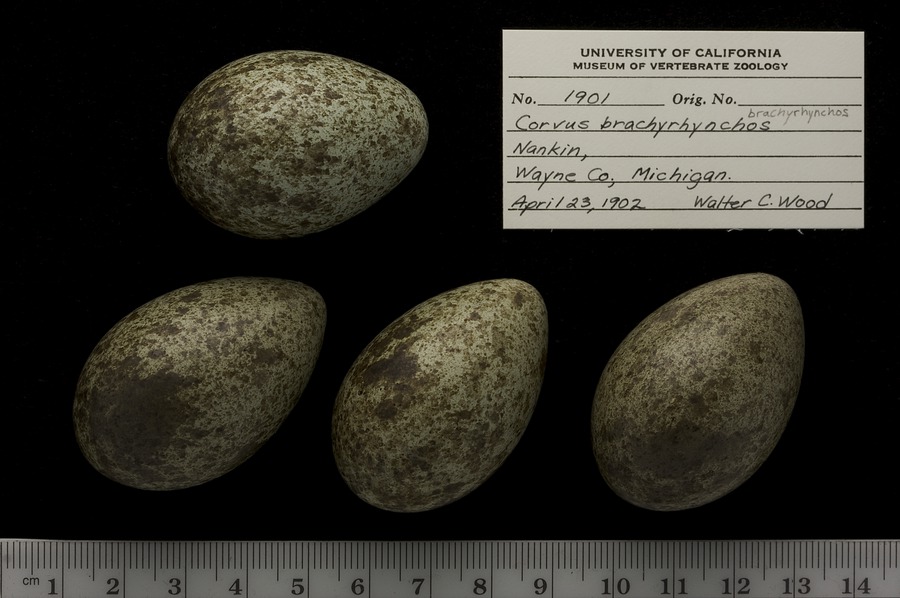 UNIVERSITY OF CALIFORNIA
MUSEUM OF VERTEBRATE ZOOLOGY
No. 1901 Orig. No.
brachyrhynchos
Corvus brachyrhynchos
Nankin,
Wayne Co., Michigan.
April 23, 1902 Walter C. Wood
cm 1 2 3 4 5 6 7 8 9 10 11 12 13 14